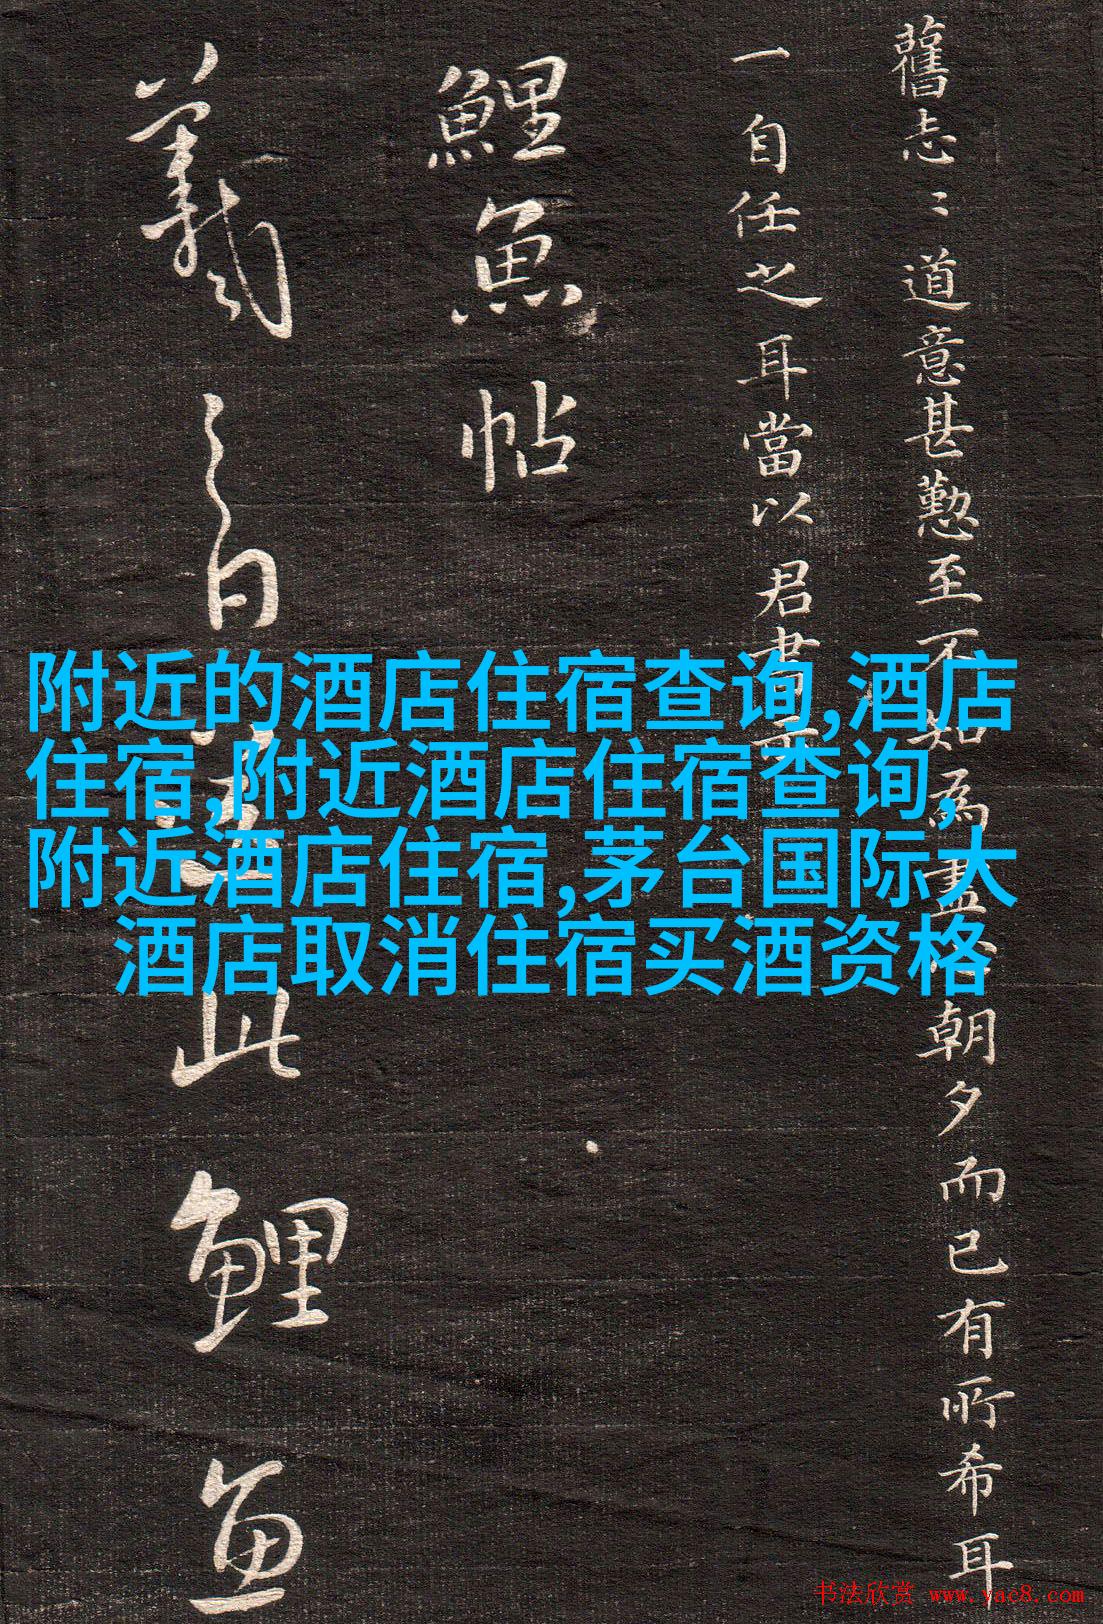 舊志〻道意甚懃至不如為盡朝夕而已有所希耳
一自任之耳當以君書
鯉魚帖
羲之白送此鯉魚
附近的酒店住宿查询,酒店
住宿,附近酒店住宿查询,
附近酒店住宿,茅台国际大
酒店取消住宿买酒资格
书法欣赏 www.yac8.com